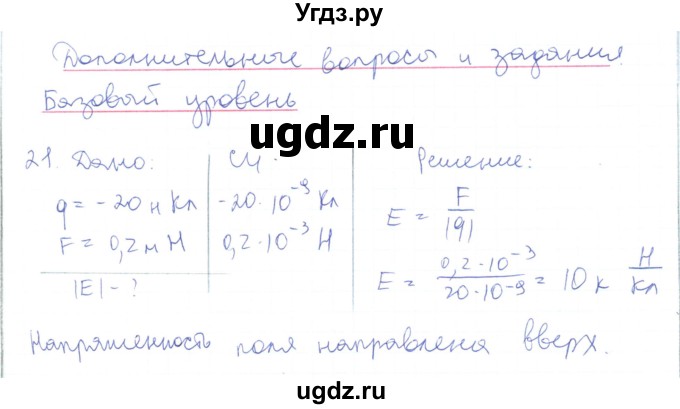 Угдз.ру
Дополнительные вопросы и задания
Базовый уровень
ugdz.ru
21. Дано: СИ: Решение:
q = -20 н Кл -20·10⁻⁹ Кл E = F/|q|
F = 0,2 м Н 0,2·10⁻³ Н
|E| - ? E = 0,2·10⁻³/20·10⁻⁹ = 10 к Н/Кл
ugdz.ru
Напряженность поля направлена вверх.
ugdz.ru